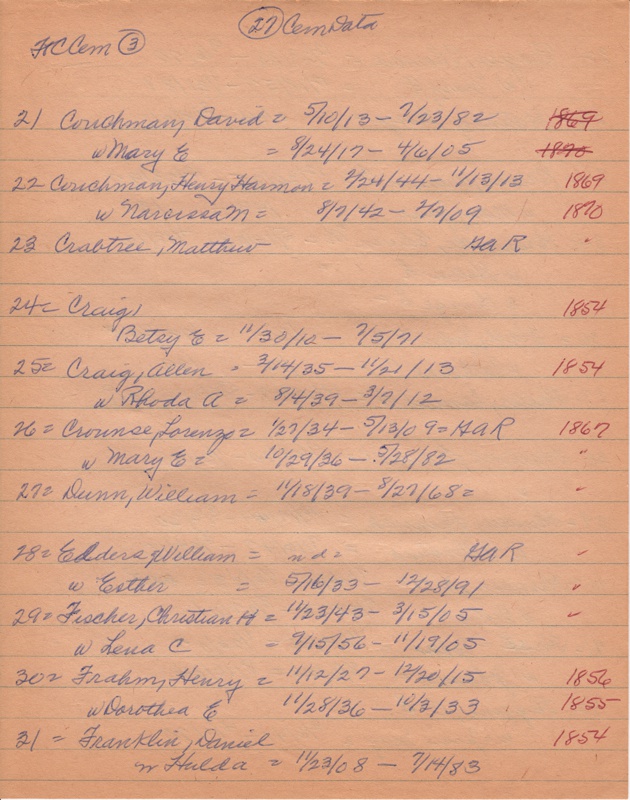 27 Cem Data
FC Cem 3
21 Couchman, David = 5/10/13 - 7/23/82 1869
w Mary E = 8/24/17 - 4/6/05 1870
22 Couchman, Henry Harmon = 2/24/44 - 11/13/13 1869
w Narcissa M = 8/7/42 - 2/7/09 1870
23 Crabtree, Matthew GAR "
24 = Craig, 1854
Betsy E = 11/30/10 - 7/5/71
25 = Craig, Allen = 3/14/35 - 11/21/13 1854
w Rhoda A = 8/4/39 - 3/7/12
26 = Crounse, Lorenzo = 1/27/34 - 5/13/09 = GAR 1867
w Mary E = 10/29/36 - 5/28/82 "
27 = Dunn, William = 11/18/39 - 8/27/68 = "
28 = Edders, William = nd = GAR "
w Esther = 5/16/33 - 12/28/91 "
29 = Fischer, Christian H = 11/23/43 - 3/15/05 "
w Lena C = 9/15/56 - 11/19/05
30 = Frahm, Henry = 11/12/27 - 12/20/15 1856
w Dorothea E 11/28/36 - 10/2/33 1855
31 = Franklin, Daniel 1854
w Hulda = 11/23/08 - 7/14/83